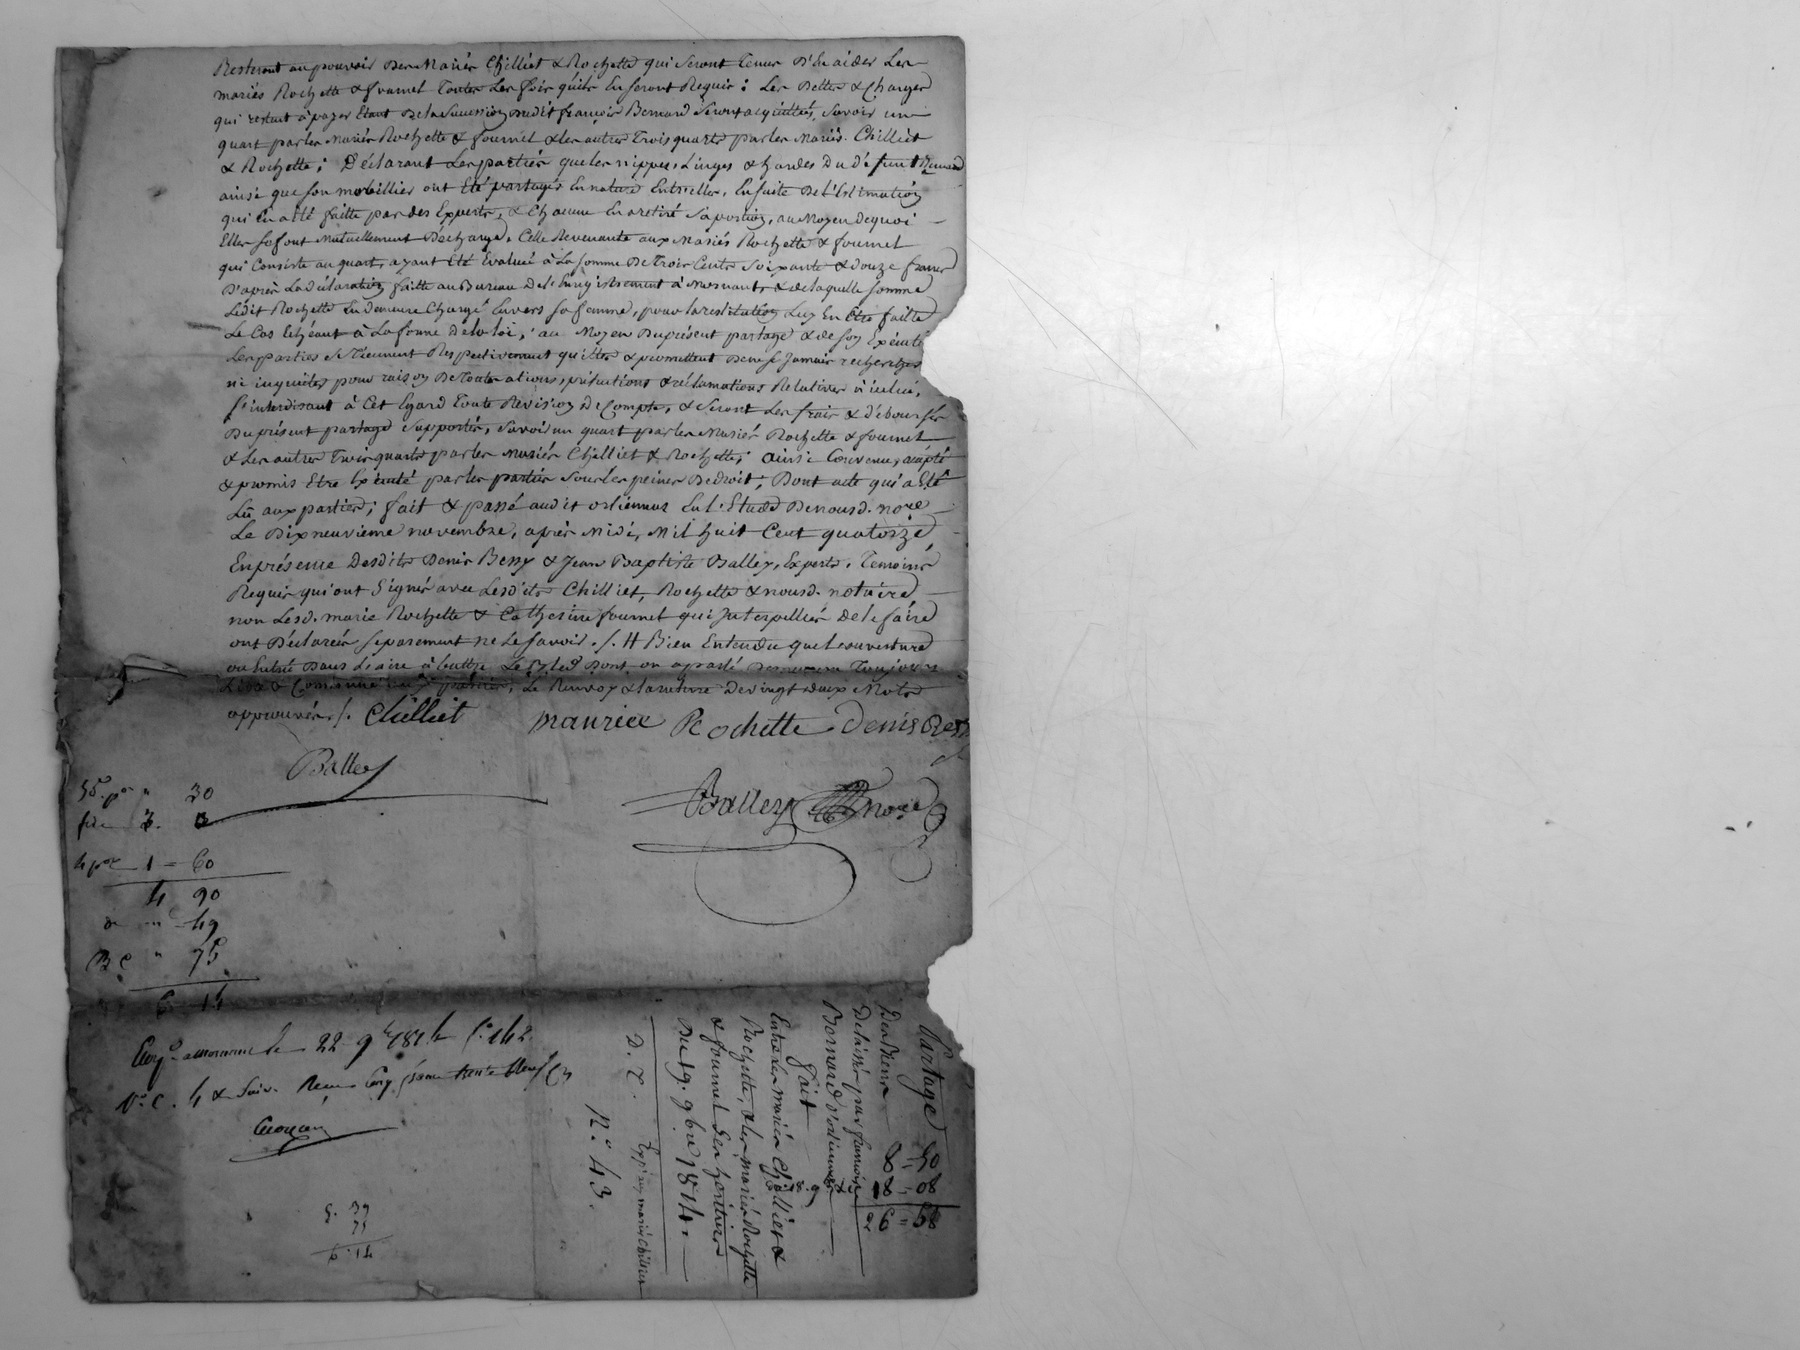 Resteront au pouvoir Des Mariés Chilliet & Rochette qui seront Tenus D'En aider Les
mariés Rochette & fournel Toutes Les fois qu'ils En seront Requis : Les Dettes & Charges
qui restent à payer Etant De la Succession Dudit françois Bernard Seront acquittées, savoir un
quart par les Mariés Rochette & fournel & les autres Trois quarts par les Mariés Chilliet
& Rochette ; Déclarant Les parties que les nippes, Linges & hardes Du défunt Bernard
ainsi que son mobillier ont Eté partagés En nature Entr'elles, En suite De L'Estimation
qui En a été faitte par des Experts, & Chacune En a retiré Sa portion, au Moyen De quoi
Elles se font Mutuellement Décharge, Celle Revenante aux Mariés Rochette & fournel
qui Consiste au quart, ayant Eté Evaluée à La somme De Trois Cents Soixante & douze francs
D'après La déclaration faitte au Bureau De L'Enregistrement à Mornant, & de laquelle somme
Ledit Rochette En demeure Chargé Envers sa femme, pour la restitution Luy En Etre faitte
Le Cas Echéant à La forme De la loi ; au Moyen Du présent partage & de son Exécuti
Les parties se Tiennent Respectivement quittes & promettent De ne se Jamais rechercher
ni inquiéter pour raison De Toutes actions, prétentions & réclamations Relatives à icelui,
s'interdisant à Cet Egard Toute Revision De Compte, & Seront Les frais & débourses
Du présent partage Supportés, Savoir un quart par les Mariés Rochette & fournel
& Les autres Trois quarts par les Mariés Chilliet & Rochette ; ainsi Convenu, accepté
& promis Etre Exécuté par les parties Sous les peines De droit ; Dont acte qui a Eté
Lû aux parties ; fait & passé audit orliennas En l'Etude De nousd. nore
Le Dix neuvieme novembre, après Midi, Mil huit Cent quatorze,
En présence Desdits Denis Bessy & Jean Baptiste Balley, Experts, Temoins
Requis qui ont Signé avec Lesdits Chilliet, Rochette & nousd. notaire
non Lesd. marie Rochette & Catherine fournel qui Interpellées De le faire
ont Déclarées séparement ne Le savoir ./. # Bien Entendu que L'ouverture
ou Entrée Dans L'aire à battre Le Bled Dont on a parlé Demeurera Toujours
Libre & Commune aux parties, Le Renvoy & la rature De vingt deux Mots
approuvés ./. Chilliet maurice Rochette Denis Bessy
Balley
Balley nore
30
3.
1 = 60
4 90
49
75
6 14
Enregé a mornant le 22 9bre 1814 fo. 142
Vo. C. 4 & Suiv. Reçu Cinq francs trente Neuf
5. 39
75
6.14
Partage
Des Biens
Delaissés par françois
Bernard d'orliennas
fait
Entre Les mariés Chilliet &
Rochette, & les mariés Rochette
& fournel Ses héritiers
Du 19. 9bre 1814
8 = 50
18 = 08
26 = 58
D. T.
No. 43.